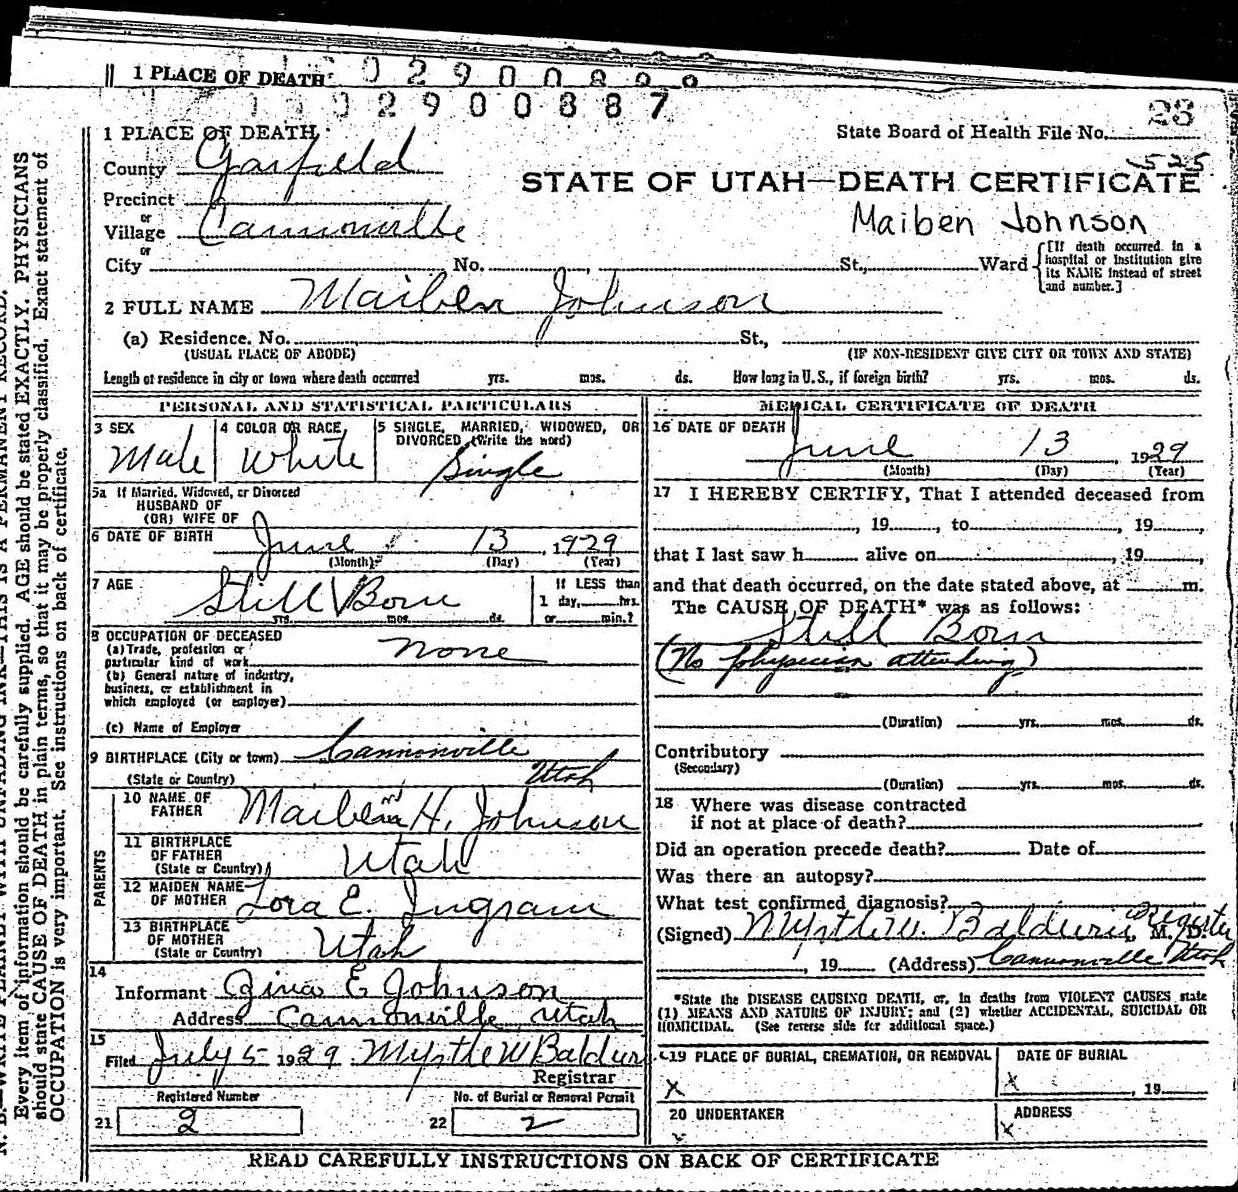 1 PLACE OF DEATH
2900887
23
1 PLACE OF DEATH
State Board of Health File No.
County Garfield
525
STATE OF UTAH—DEATH CERTIFICATE
Precinct
or
Village Cannonville
Maiben Johnson
or
City No. St., Ward
[If death occurred in a hospital or institution give its NAME instead of street and number.]
2 FULL NAME Maiben Johnson
(a) Residence. No. St.,
(USUAL PLACE OF ABODE) (IF NON-RESIDENT GIVE CITY OR TOWN AND STATE)
Length of residence in city or town where death occurred yrs. mos. ds. How long in U.S., if foreign birth? yrs. mos. ds.
PERSONAL AND STATISTICAL PARTICULARS
3 SEX
Male
4 COLOR OR RACE
White
5 SINGLE, MARRIED, WIDOWED, OR
DIVORCED (Write the word)
Single
5a If Married, Widowed, or Divorced
HUSBAND OF
(OR) WIFE OF
6 DATE OF BIRTH June 13, 1929
(Month) (Day) (Year)
7 AGE
Still Born
yrs. mos. ds.
If LESS than
1 day, hrs.
or min.?
8 OCCUPATION OF DECEASED
(a) Trade, profession or
particular kind of work none
(b) General nature of industry,
business, or establishment in
which employed (or employer)
(c) Name of Employer
9 BIRTHPLACE (City or town) Cannonville
(State or Country) Utah
PARENTS
10 NAME OF
FATHER Maiben H. Johnson
11 BIRTHPLACE
OF FATHER
(State or Country) Utah
12 MAIDEN NAME
OF MOTHER Lora E. Ingram
13 BIRTHPLACE
OF MOTHER
(State or Country) Utah
14
Informant E Johnson
Address Cannonville, Utah
15
Filed July 5 1929 Myrtle W Baldwin
Registrar
Registered Number
21 2
No. of Burial or Removal Permit
22 2
MEDICAL CERTIFICATE OF DEATH
16 DATE OF DEATH
June 13, 1929
(Month) (Day) (Year)
17 I HEREBY CERTIFY, That I attended deceased from
, 19 , to , 19 ,
that I last saw h alive on , 19 ,
and that death occurred, on the date stated above, at m.
The CAUSE OF DEATH* was as follows:
Still Born
(No physician attending)
(Duration) yrs. mos. ds.
Contributory
(Secondary)
(Duration) yrs. mos. ds.
18 Where was disease contracted
if not at place of death?
Did an operation precede death? Date of
Was there an autopsy?
What test confirmed diagnosis?
(Signed) Myrtle W. Baldwin, Register M. D.
, 19 (Address) Cannonville Utah
*State the DISEASE CAUSING DEATH, or, in deaths from VIOLENT CAUSES state
(1) MEANS AND NATURE OF INJURY; and (2) whether ACCIDENTAL, SUICIDAL OR
HOMICIDAL. (See reverse side for additional space.)
19 PLACE OF BURIAL, CREMATION, OR REMOVAL
x
DATE OF BURIAL
x , 19
20 UNDERTAKER
ADDRESS
x
READ CAREFULLY INSTRUCTIONS ON BACK OF CERTIFICATE
Every item of information should be carefully supplied. AGE should be stated EXACTLY. PHYSICIANS
should state CAUSE OF DEATH in plain terms, so that it may be properly classified. Exact statement of
OCCUPATION is very important. See instructions on back of certificate.